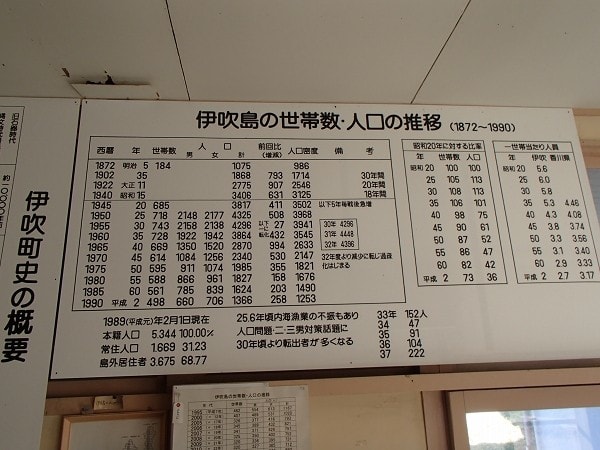 伊吹島の世帯数・人口の推移 (1872～1990)
西暦 年 世帯数 人口 男 女 計 前回比(増減) 人口密度 備考
1872 明治 5 184 1075 986
1902 35 1868 793 1714 30年間
1922 大正 11 2775 907 2546 20年間
1940 昭和 15 3406 631 3125 18年間
1945 20 685 3817 411 3502 以下5年毎戦後急増
1950 25 718 2148 2177 4325 508 3968
1955 30 743 2158 2138 4296 以下で 27 3941 30年 4296
1960 35 728 1922 1942 3864 転化 432 3545 31年 4448
1965 40 669 1350 1520 2870 994 2633 32年 4396
1970 45 614 1084 1256 2340 530 2147 32年度より減少に転じ過疎
1975 50 595 911 1074 1985 355 1821 化はじまる
1980 55 588 866 961 1827 158 1676
1985 60 561 785 839 1624 203 1490
1990 平成 2 498 660 706 1366 258 1253
昭和20年に対する比率
年 世帯数 人口
昭和 20 100 100
25 105 113
30 109 113
35 106 101
40 98 75
45 90 61
50 87 52
55 86 47
60 82 42
平成 2 73 36
一世帯当たり人員
年 伊吹 香川県
昭和 20 5.6
25 6.0
30 5.8
35 5.3 4.46
40 4.3 4.08
45 3.8 3.74
50 3.3 3.56
55 3.1 3.40
60 2.9 3.33
平成 2 2.7 3.17
1989(平成元)年2月1日現在
本籍人口 5.344 100.00%
常住人口 1.669 31.23
島外居住者 3.675 68.77
25.6年頃内海漁業の不振もあり
人口問題・二・三男対策話題に
30年頃より転出者が多くなる
33年 152人
34 47
35 91
36 104
37 222
伊吹町史の概要
旧石器時代
伊吹島の世帯数・人口の推移